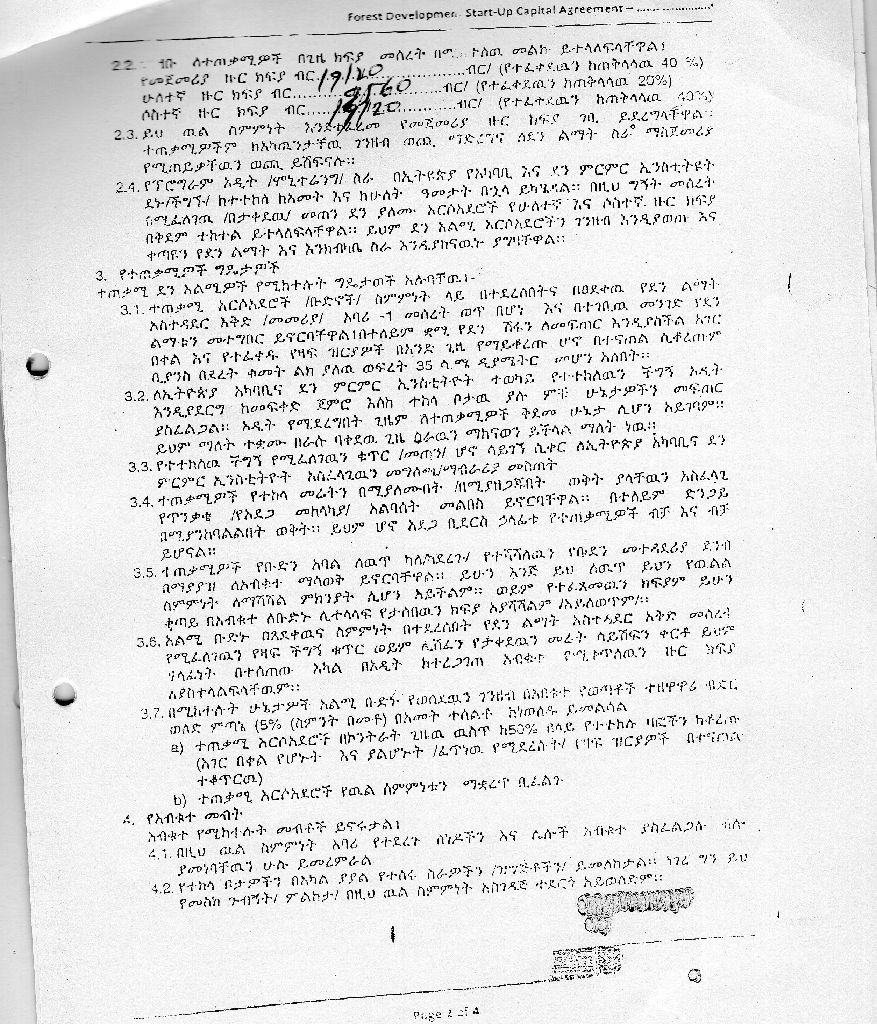 Forest Developmen. Start-Up Capital Agreement –
2.2. ገቡ ለተጠቃሚዎች በጊዜ ክፍያ መሰረት በሚ መልኩ ይተላለፍላቸዋል፤
የመጀመሪያ ዙር ክፍያ ብር..19120..ብር/ (የተፈቀደዉን ከጠቅላላዉ 40 %)
ሁለተኛ ዙር ክፍያ ብር..9560..ብር/ (የተፈቀደዉን ከጠቅላላዉ 20%)
ሶስተኛ ዙር ክፍያ ብር..19120..ብር/ (የተፈቀደዉን ከጠቅላላዉ 40%)
2.3. ይህ ዉል ስምምነት እንደተፈረመ የመጀመሪያ ዙር ክፍያ ገቢ ይደረግላቸዋል።
ተጠቃሚዎችም ከአካዉንታቸዉ ገንዘብ ወጪ ማድረግና ለደን ልማት ስራ ማስጀመሪያ
የሚጠይቃቸዉን ወጪ ይሸፍናሉ።
2.4. የፕሮግራም ኦዲት /ሞኒተሬንግ/ ስራ በኢትዮጵያ የአካባቢ እና ደን ምርምር ኢንስቲትዩት
ደኑ/ችግኙ/ ከተተከለ ከአመት እና ከሁለት ዓመታት በኋላ ይካሄዳል። በዚህ ግኝት መሰረት
በሚፈለገዉ /በታቀደዉ/ መጠን ደን ያለሙ አርሶአደሮች የሁለተኛ እና ሶስተኛ ዙር ክፍያ
በቅደም ተከተል ይተላለፍላቸዋል። ይህም ደን አልሚ አርሶአደሮችን ገንዘብ እንዲያወጡ እና
ቀጣዩን የደን ልማት እና እንክብካቤ ስራ እንዲያከናዉኑ ያግዛቸዋል።
3. የተጠቃሚዎች ግዴታዎች
ተጠቃሚ ደን አልሚዎች የሚከተሉት ግዴታወች አሉባቸዉ፤-
3.1. ተጠቃሚ አርሶአደሮች /ቡድኖች/ ስምምነት ላይ በተደረሰበትና በፀደቀዉ የደን ልማት
አስተዳደር እቅድ /መመሪያ/ አባሪ -1 መሰረት ወጥ በሆነ እና በተገቢዉ መንገድ የደን
ልማቱን መተግበር ይኖርባቸዋል፤በተለይም ቋሚ የደን ሽፋን ለመፍጠር እንዲያስችል አገር
በቀል እና የተፈቀዱ የዛፍ ዝርያዎች በአንድ ጊዜ የማይቆረጡ ሆኖ በተናጠል ሲቆረጡም
ቢያንስ በደረት ቁመት ልክ ያለዉ ወፍረት 35 ሳ.ሜ ዲያሜትር መሆን አለበት።
3.2. ለኢትዮጵያ አካባቢና ደን ምርምር ኢንስቲትዮት ተወካይ የተተከለዉን ችግኝ ኦዲት
እንዲያደርግ ከመፍቀድ ጀምሮ እስከ ተከላ ቦታዉ ያሉ ምቹ ሁኔታዎችን መፍጠር
ያስፈልጋል። ኦዲት የሚደረግበት ጊዜም ለተጠቃሚዎች ቅድመ ሁኔታ ሊሆን አይገባም።
ይህም ማለት ተቋሙ በራሱ ባቀደዉ ጊዜ ስራዉን ማከናወን ይችላል ማለት ነዉ።
3.3. የተተከለዉ ችግኝ የሚፈለገዉን ቁጥር /መጠን/ ሆኖ ሳይገኝ ሲቀር ለኢትዮጵያ አካባቢና ደን
ምርምር ኢንስቲትዮት አስፈላጊዉን መግለጫ/ማብራሪያ መስጠት
3.4. ተጠቃሚዎች የተከላ መሬትን በሚያለሙበት /በሚያዘጋጁበት ወቅት ያላቸዉን አስፈላጊ
የጥንቃቄ /የአደጋ መከላከያ/ አልባሳት መልበስ ይኖርባቸዋል። በተለይም ድንጋይ
በሚያንከባልልበት ወቅት። ይህም ሆኖ አደጋ ቢደርስ ኃላፊቱ የተጠቃሚዎች ብቻ እና ብቻ
ይሆናል።
3.5. ተጠቃሚዎች የቡድን አባል ለዉጥ ካለ/ካደረጉ/ የተሻሻለዉን የቡድን መተዳደሪያ ደንብ
በማያያዝ ለአብቁተ ማሳወቅ ይኖርባቸዋል። ይሁን እንጅ ይህ ለዉጥ ይህን የዉልል
ስምምነት ለማሻሻል ምክንያት ሊሆን አይችልም። ወይም የተፈጸመዉን ክፍያም ይሁን
ቀጣይ በአብቁተ ለቡድኑ ሊተላለፍ የታሰበዉን ክፍያ አያሻሽልም /አይለዉጥም/።
3.6. አልሚ ቡድኑ በጸደቀዉና ስምምነት በተደረሰበት የደን ልማት አስተዳደር እቅድ መሰረት
የሚፈለገዉን የዛፍ ችግኝ ቁጥር ወይም ሊሸፈን የታቀደዉን መሬት ሳይሸፍን ቀርቶ ይህም
ሃላፊነት በተሰጠው አካል በኦዲት ከተረጋገጠ አብቁተ የሚቀጥለዉን ዙር ክፍያ
አያስተላልፍላቸዉም።
3.7. በሚከተሉት ሁኔታዎች አልሚ ቡድኑ የወሰደዉን ገንዘብ በአብቁተ የወጣቶች ተዘዋዋሪ ብድር
ወለድ ምጣኔ (5% (ስምንት በመቶ) በአመት ተሰልቶ ይመልሳል
a) ተጠቃሚ አርሶአደሮች በኮንትራት ጊዜዉ ዉስጥ ከ50% በላይ የተተከሉ ዛፎችን ከቆረጡ
(አገር በቀል የሆኑት እና ያልሆኑት /ፈጥነዉ የሚደረሱት/ የዛፍ ዝርያዎች በተናጠል
ተቆጥርዉ)
b) ተጠቃሚ አርሶአደሮች የዉል ስምምነቱን ማቋረጥ ቢፈልጉ
4. የአብቁተ መብት
አብቁተ የሚከተሉት መብቶች ይኖሩታል፤
4.1. በዚህ ዉል ስምምነት አባሪ የተደረጉ ሰነዶችን እና ሌሎች አብቁተ ያስፈልጋሉ ብሎ
ያመነባቸዉን ሁሉ ይመረምራል
4.2. የተከላ ቦታዎችን በአካል ያያል የተሰሩ ስራዎችን ይመለከታል። ነገረ ግን ይህ
የመስክ ጉብኝት/ ምልከታ/ በዚህ ዉል ስምምነት አስገዳጅ ተደርጎ አይወሰድም።
Page 2 of 4